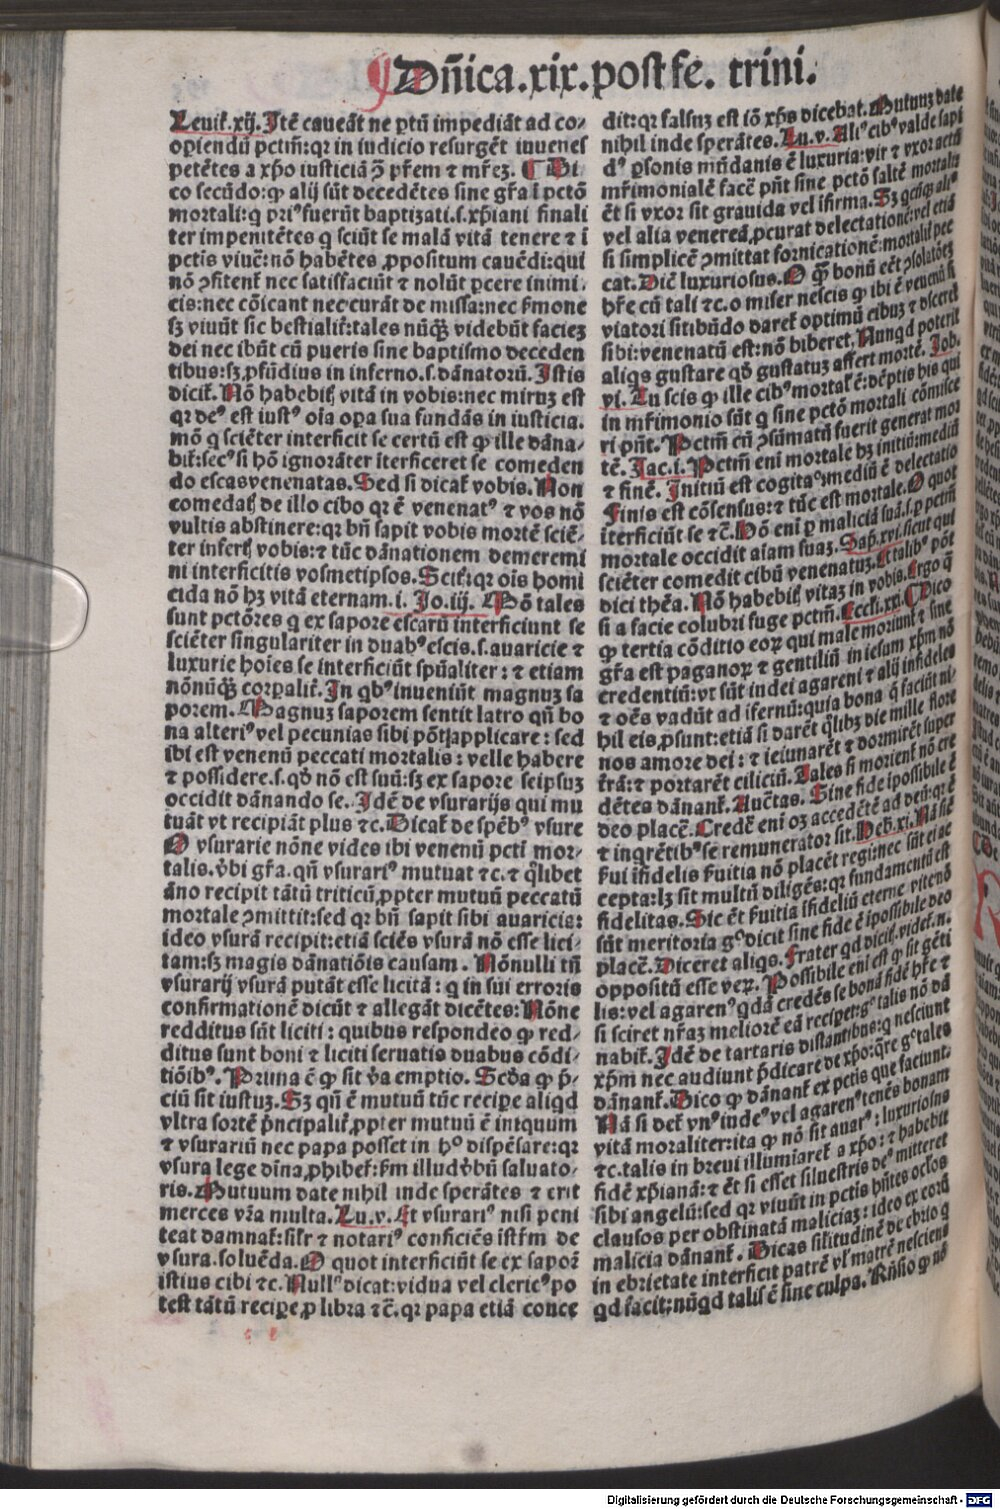 Dñica.xix.post fe. trini.
Leuit̃.xij. Itẽ caueãt ne ꝑtũ impediãt ad co-
opiendũ pctm̃:qꝛ in iudicio resurgẽt iuuenes
petẽtes a xp̃o iusticiã ꝯ pr̃em ⁊ mr̃eꝫ. ¶ Di
co secũdo:ꝙ alij sũt decedẽtes sine gr̃a ĩ pctõ
mortali:q priꝰ fuerũt baptizati.s.xp̃iani finali
ter impenitẽtes q sciũt se malã vitã tenere ⁊ ĩ
pctis viuẽ:nõ habẽtes ꝓpositum cauẽdi:qui
nõ ꝯfitent̃ nec satisfaciũt ⁊ nolũt ꝑcere inimi-
cis:nec cõicant nec curãt de missa:nec ẜmone
sꝫ viuũt sic bestialit̃:tales nũq̃ꝫ videbũt facieꝫ
dei nec ibũt cũ pueris sine baptismo deceden
tibus:sꝫ ꝓfũdius in inferno.s.dãnatorũ. Istis
dicit̃. Nõ habebit̃ vitã in vobis:nec miruꝫ est
qꝛ deꝰ est iustꝰ oĩa opa sua fundãs in iusticia.
mõ q sciẽter interficit se certũ est ꝙ ille dãna-
bit̃:secꝰ si hõ ignorãter ĩterficeret se comeden
do escas venenatas. Sed si dicat̃ vobis. Non
comedatꝭ de illo cibo qꝛ ẽ venenatꝰ ⁊ vos nõ
vultis abstinere:qꝛ bñ sapit vobis mortẽ sciẽ-
ter infertꝭ vobis:⁊ tũc dãnationem demeremi
ni interficitis vosmetipsos. Scit̃:qꝛ oĩs homi
cida nõ hꝫ vitã eternam.i. Jo.iij. Mõ tales
sunt pctõres q ex sapore escarũ interficiunt se
sciẽter singulariter in duabꝰ escis.s.auaricie ⁊
luxurie hoĩes se interficiũt spũaliter:⁊ etiam
nõnũq̃ꝫ corꝑalit̃. In qbꝰ inueniũt magnuꝫ sa
porem. Magnuꝫ saporem sentit latro qñ bo
na alteriꝰ vel pecunias sibi põt applicare:sed
ibi est venenũ peccati mortalis:velle habere
⁊ possidere.s.qd̾ nõ est suũ:sꝫ ex sapore seipsuꝫ
occidit dãnando se. Idẽ de vsurarijs qui mu
tuãt vt recipiãt plus ⁊c. Dicat̃ de spẽbꝰ vsure
O vsurarie nõne vides ibi venenũ pcti mor-
talis.v̾bi gr̃a.qñ vsurariꝰ mutuat ⁊c.⁊ q̾libet
ãno recipit tãtũ triticũ,ꝓpter mutuũ peccatũ
mortale ꝯmittit:sed qꝛ bñ sapit sibi auaricia:
ideo vsurã recipit:etiã sciẽs vsurã nõ esse lici-
tam:sꝫ magis dãnatiõis causam. Nõnulli tñ
vsurarij vsurã putãt esse licitã:q in sui erroris
confirmationẽ dicũt ⁊ allegãt dicẽtes:Nõne
redditus sũt liciti:quibus respondeo ꝙ red-
ditus sunt boni ⁊ liciti seruatis duabus cõdi-
tiõibꝰ. Prima ẽ ꝙ sit ṽa emptio. Scd̾a ꝙ p̃-
ciũ sit iustuꝫ. Sꝫ qñ ẽ mutuũ tũc recipe aliqd
vltra sortẽ p̃ncipalit̃,ꝓpter mutuũ ẽ iniquum
⁊ vsurariũ nec papa posset in hᵒ dispẽsare:qꝛ
vsura lege diĩna,ꝓhibet̃:ẜm illud v̾bũ saluato-
ris. Mutuum date nihil inde sperãtes ⁊ erit
merces vr̃a multa. Lu.v. Et vsurariꝰ nisi peni
teat damnat̃:sil̃r ⁊ notariꝰ conficiẽs istr̃m de
vsura.soluẽda. O quot interficiũt se ex sapoꝛ
istius cibi ⁊c. Nullꝰ dicat:vidua vel clericꝰ po
test tãtũ recipe,ꝓ libra ⁊c̃.qꝛ papa etiã conce
dit:qꝛ falsuꝫ est iõ xp̃s dicebat. Mutuuꝫ date
nihil inde sperãtes. Lu.v. Aliꝰ cibꝰ valde sapi
dꝰ ꝑsonis mũdanis ẽ luxuria:vir ⁊ vxor actũ
mr̃imonialẽ facẽ pñt sine pctõ saltẽ mortali
ẽt si vxor sit grauida vel ĩfirma. Sꝫ qcũqꝫ aliꝰ
vel alia venereã,ꝓcurat delectationẽ:vel etiã
si simplicẽ ꝯmittat fornicationẽ:mortalit̃ pec
cat. Dicẽ luxuriosus. O q̃ bonũ eẽt ꝯsolatõeꝫ
hr̃e cũ tali ⁊c. o miser nescis ꝙ ibi ẽ venenũ si
viatori sitibũdo daret̃ optimũ cibuꝫ ⁊ diceret̃
sibi:venenatũ est:nõ biberet. Nunqd poterit
aliqs gustare qd̾ gustatuꝫ affert mortẽ. Job.
vi. Tu scis ꝙ ille cibꝰ mortal̃ ẽ:dẽptis his qui
in mr̃imonio sũt q sine pctõ mortali cõmisce
ri pñt. Pctm̃ cũ ꝯsũmatũ fuerit generat moꝛ
tẽ. Jac.i. Pctm̃ enĩ mortale hꝫ initiũ:mediũ
⁊ finẽ. Initiũ est cogitaᵒ:mediũ ẽ delectatio
Finis est cõsensus:⁊ tũc est mortale. O quot
ĩterficiũt se ⁊c̃. Hõ enĩ ꝑ maliciã suã.s.ꝑ pctm̃
mortale occidit aĩam suaꝫ. Sap̃.xvi. sicut qui
sciẽter comedit cibũ venenatuꝫ. Et talibꝰ põt
dici thẽa. Nõ habebitꝭ vitaꝫ in vobis. Ergo q̃
si a facie colubri fuge pctm̃. Eccli.xxi. ¶ Dico
ꝙ tertia cõditio eoꝝ qui male moriunt̃ ⁊ sine
gr̃a est paganoꝝ ⁊ gentiliũ in iesum xp̃m nõ
credentiũ:vt sũt iudei agareni ⁊ alij infideles
⁊ oẽs vadũt ad ĩfernũ:quia bona q̃ faciũt ni-
hil eis,ꝓsunt:etiã si darẽt q̾libꝫ die mille flore
nos amore dei:⁊ ieiunarẽt ⁊ dormirẽt super
tr̃ã:⁊ portarẽt ciliciũ. Tales si morient̃ nõ cre
dẽtes dãnant̃. Auc̃tas. Sine fide ĩpossibile ẽ
deo placẽ. Credẽ enĩ oꝫ accedẽtẽ ad deũ:qꝛ ẽ
⁊ inqrẽtibꝰ se remunerator sit. Heb̾.xi. Nã sic̃
ẜui ĩfidelis ẜuitia nõ placẽt regi:nec sũt ei ac
cepta:lꝫ sit multũ diligẽs:qꝛ fundamentũ est
fidelitas. Sic ẽt ẜuitia ĩfideliũ eterne vite nõ
sũt meritoria gᵒ dicit sine fide ẽ ĩpossibile deo
placẽ. Diceret aliqs. Frater qd dicitꝭ. videt̃.n.
oppositũ esse veꝝ. Possibile enĩ est ꝙ sit gẽti
lis:vel agarenꝰ qdã credẽs se bonã fidẽ hr̃e ⁊
si sciret nr̃aꝫ meliorẽ eã reciperꝫ gᵒ talis nõ dã
nabit̃. Idẽ de tartaris distantibus:q nesciunt
xp̃m nec audiunt p̃dicare de xp̃o:q̃re gᵒ tales
dãnant̃. Dico ꝙ dãnant̃ ex pctis que faciunt:
Nã si det̃ vnꝰ iudeꝰ vel agarenꝰ tenẽs bonam
vitã moraliter:ita ꝙ nõ sit auarꝰ:luxuriosus
⁊c.talis in breui illumiaret̃ a xp̃o:⁊ habebit
fidẽ xp̃ianã:⁊ ẽt si esset siluestris deꝰ mitteret
sibi angelũ:sed qꝛ viuũt in pctis hñtes oc̃los
clausos per obstinatã maliciaꝫ:ideo ex eoꝝ
malicia dãnant̃. Dicas sil̃itudinẽ de ebrio q
in ebrietate interficit patrẽ vl̾ matrẽ nesciens
qd facit:nũqd talis ẽ sine culpa. Rñsio ꝙ nõ
Digitalisierung gefördert durch die Deutsche Forschungsgemeinschaft - DFG